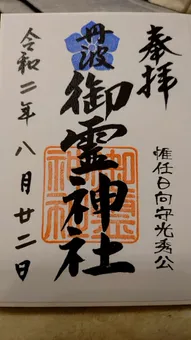 奉拝
惟任日向守光秀公
丹波
御霊神社
令和二年八月廿二日
御霊神社